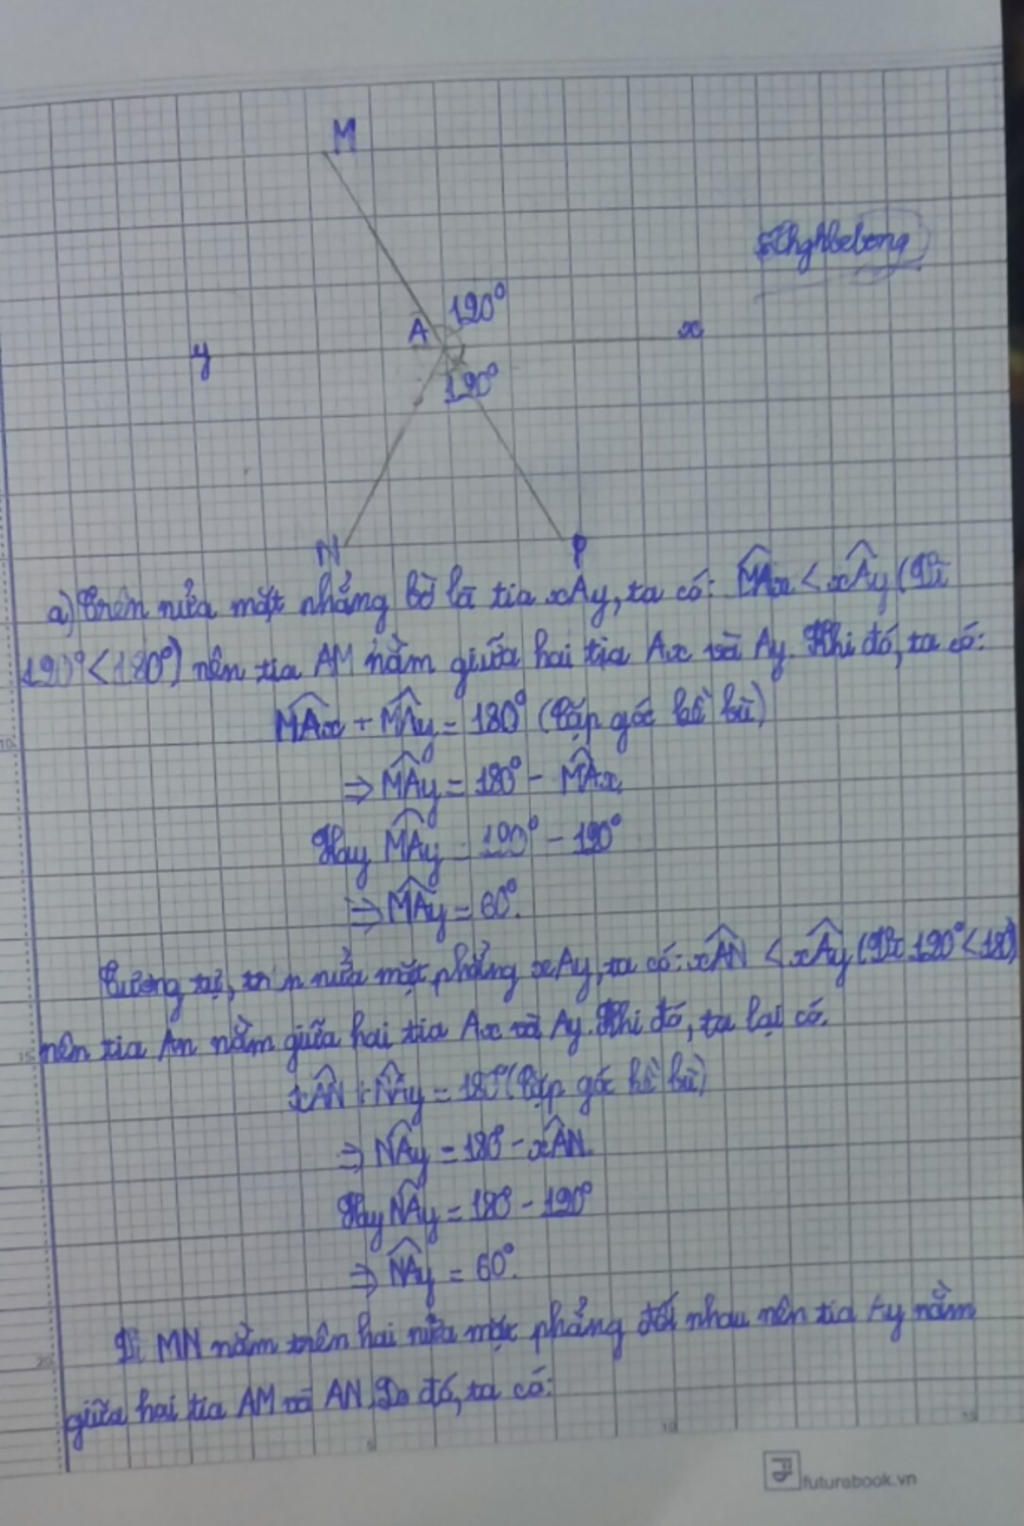 M
120°
A
x
y
120°
N
P
a) Trên nửa mặt phẳng bờ là tia xAy, ta có: MAx < xAy (Vì
120° < 180°) nên tia AM nằm giữa hai tia Ax và Ay. Khi đó, ta có:
MAx + MAy = 180° (Cặp góc kề bù)
⇒ MAy = 180° - MAx
Hay MAy = 180° - 120°
⇒ MAy = 60°.
Tương tự, trên nửa mặt phẳng xAy, ta có: xAN < xAy (Vì 120° < 180°)
nên tia An nằm giữa hai tia Ax và Ay. Khi đó, ta lại có.
xAN + NAy = 180° (Cặp góc kề bù)
⇒ NAy = 180° - xAN.
Hay NAy = 180° - 120°
⇒ NAy = 60°.
Vì MN nằm trên hai nửa mặt phẳng đối nhau nên tia Ay nằm
giữa hai tia AM và AN. Do đó, ta có:
futurebook.vn